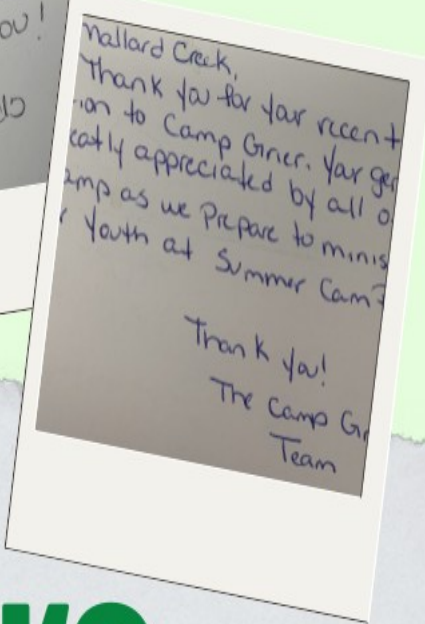 ou!
Mallard Creek,
Thank you for your recent
ion to Camp Grier. Your ger
eatly appreciated by all o
amp as we prepare to minis
r Youth at Summer Camp
Thank you!
The Camp Gr
Team